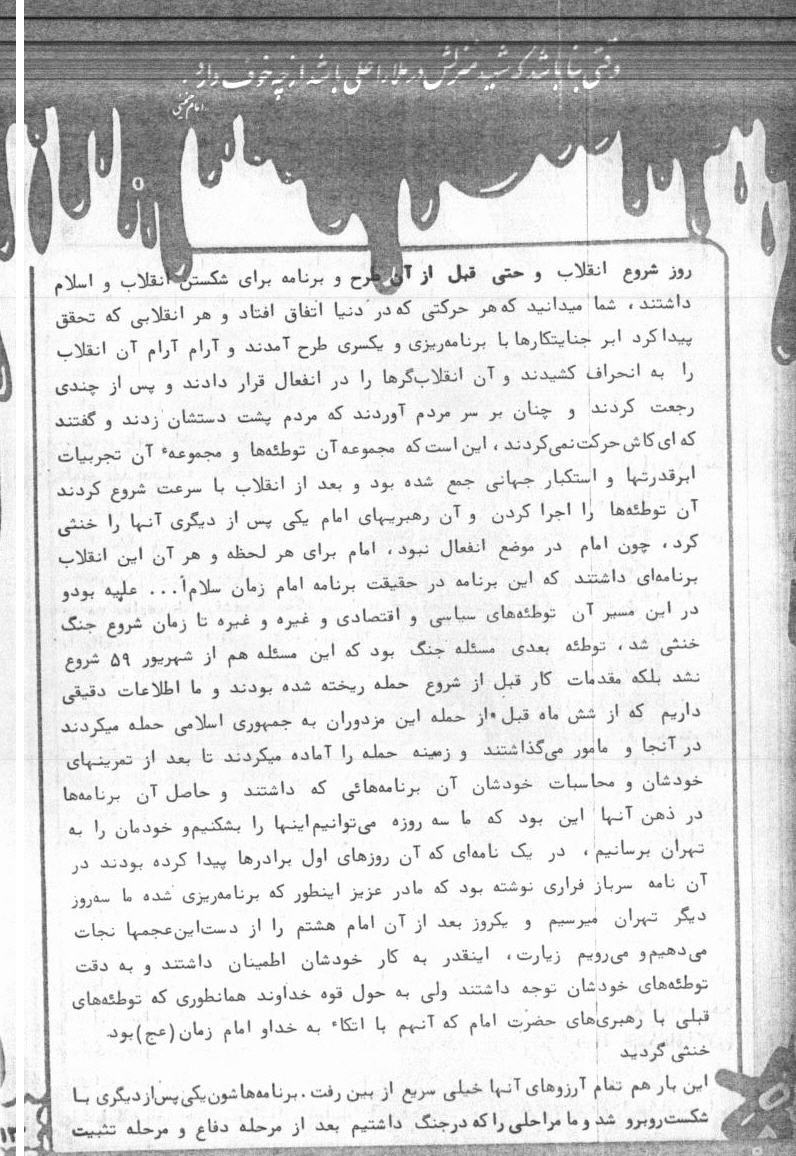 وقتی بنا باشد که شهید منزلش در ملاء اعلی باشد از چه خوف دارد.
امام خمینی
روز شروع انقلاب و حتی قبل از آن طرح و برنامه برای شکستن انقلاب و اسلام
داشتند، شما میدانید که هر حرکتی که در دنیا اتفاق افتاد و هر انقلابی که تحقق
پیدا کرد ابر جنایتکارها با برنامه‌ریزی و یکسری طرح آمدند و آرام آرام آن انقلاب
را به انحراف کشیدند و آن انقلاب‌گرها را در انفعال قرار دادند و پس از چندی
رجعت کردند و چنان بر سر مردم آوردند که مردم پشت دستشان زدند و گفتند
که ای کاش حرکت نمی‌کردند، این است که مجموعه آن توطئه‌ها و مجموعهٔ آن تجربیات
ابرقدرتها و استکبار جهانی جمع شده بود و بعد از انقلاب با سرعت شروع کردند
آن توطئه‌ها را اجرا کردن و آن رهبریهای امام یکی پس از دیگری آنها را خنثی
کرد، چون امام در موضع انفعال نبود، امام برای هر لحظه و هر آن این انقلاب
برنامه‌ای داشتند که این برنامه در حقیقت برنامه امام زمان سلام‌ا... علیه بودو
در این مسیر آن توطئه‌های سیاسی و اقتصادی و غیره و غیره تا زمان شروع جنگ
خنثی شد، توطئه بعدی مسئله جنگ بود که این مسئله هم از شهریور ۵۹ شروع
نشد بلکه مقدمات کار قبل از شروع حمله ریخته شده بودند و ما اطلاعات دقیقی
داریم که از شش ماه قبل از حمله این مزدوران به جمهوری اسلامی حمله میکردند
در آنجا و مامور می‌گذاشتند و زمینه حمله را آماده میکردند تا بعد از تمرینهای
خودشان و محاسبات خودشان آن برنامه‌هائی که داشتند و حاصل آن برنامه‌ها
در ذهن آنها این بود که ما سه روزه می‌توانیم اینها را بشکنیم و خودمان را به
تهران برسانیم، در یک نامه‌ای که آن روزهای اول برادرها پیدا کرده بودند در
آن نامه سرباز فراری نوشته بود که مادر عزیز اینطور که برنامه‌ریزی شده ما سه‌روز
دیگر تهران میرسیم و یکروز بعد از آن امام هشتم را از دست این عجمها نجات
می‌دهیم و می‌رویم زیارت، اینقدر به کار خودشان اطمینان داشتند و به دقت
توطئه‌های خودشان توجه داشتند ولی به حول قوه خداوند همانطوری که توطئه‌های
قبلی با رهبری‌های حضرت امام که آنهم با اتکاء به خداو امام زمان (عج) بود.
خنثی گردید
این بار هم تمام آرزوهای آنها خیلی سریع از بین رفت. برنامه‌هاشون یکی پس از دیگری با
شکست روبرو شد و ما مراحلی را که در جنگ داشتیم بعد از مرحله دفاع و مرحله تثبیت